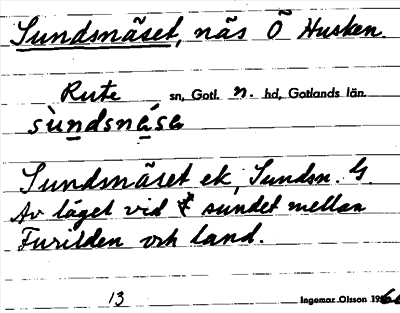 Sundsnäset, näs Ö Husken.
Rute sn, Gotl. n. hd, Gotlands län.
sùndsnä́sä
Sundsnäset ek, Sundsn. G.
Av läget vid sundet mellan
Furilden och land.
13 Ingemar Olsson 19